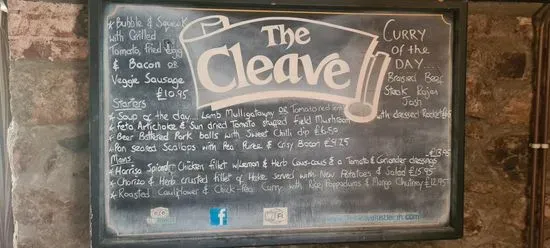 * Bubble & Squeak
with Grilled
Tomato, Fried Egg
& Bacon or
Veggie Sausage
£10.95
The
Cleave
CURRY
of the
DAY....
Braised Beef
Steak Rogan
Josh
Starters
* Soup of the day... Lamb Mulligatawny or Tomato red
* Feta Artichoke & Sun dried Tomato stuffed field Mushroom with dressed Rocket
* Beer Battered Pork balls with Sweet Chilli dip £6.50
* Pan seared Scallops with Pea Puree & Crispy Bacon £9.25
Mains
* Harrisa Spiced Chicken fillet w Lemon & Herb Cous-cous & a Tomato & Coriander dressing £13.95
* Chorizo & Herb crusted fillet of Hake served with New Potatoes & Salad £15.95
* Roasted Cauliflower & Chick-Pea Curry with Rice, Poppadums & Mango Chutney £12.95
f
WiFi